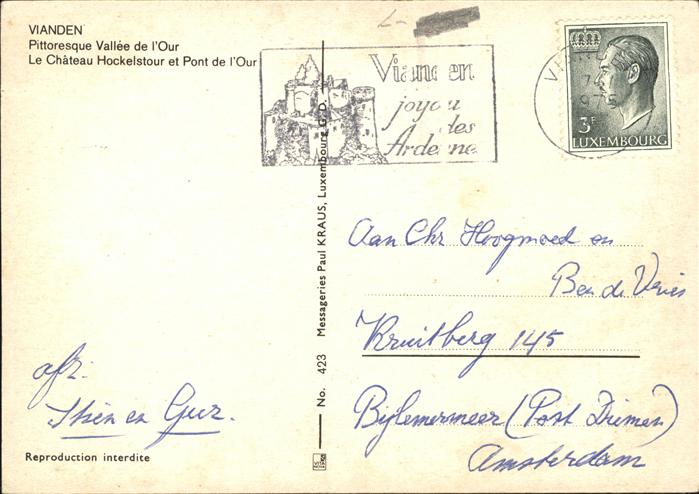 VIANDEN
Pittoresque Vallée de l'Our
Le Château Hockelstour et Pont de l'Our
Vianden
joyau
des
Ardenne
3F
LUXEMBOURG
No. 423 Messageries Paul KRAUS, Luxembourg G.D.
Aan Chr Hoogmoed en
Ben de Vries
Kruitberg 145
Bijlemermeer (Post Diemen)
Amsterdam
afz.
Stien en Guz.
Reproduction interdite